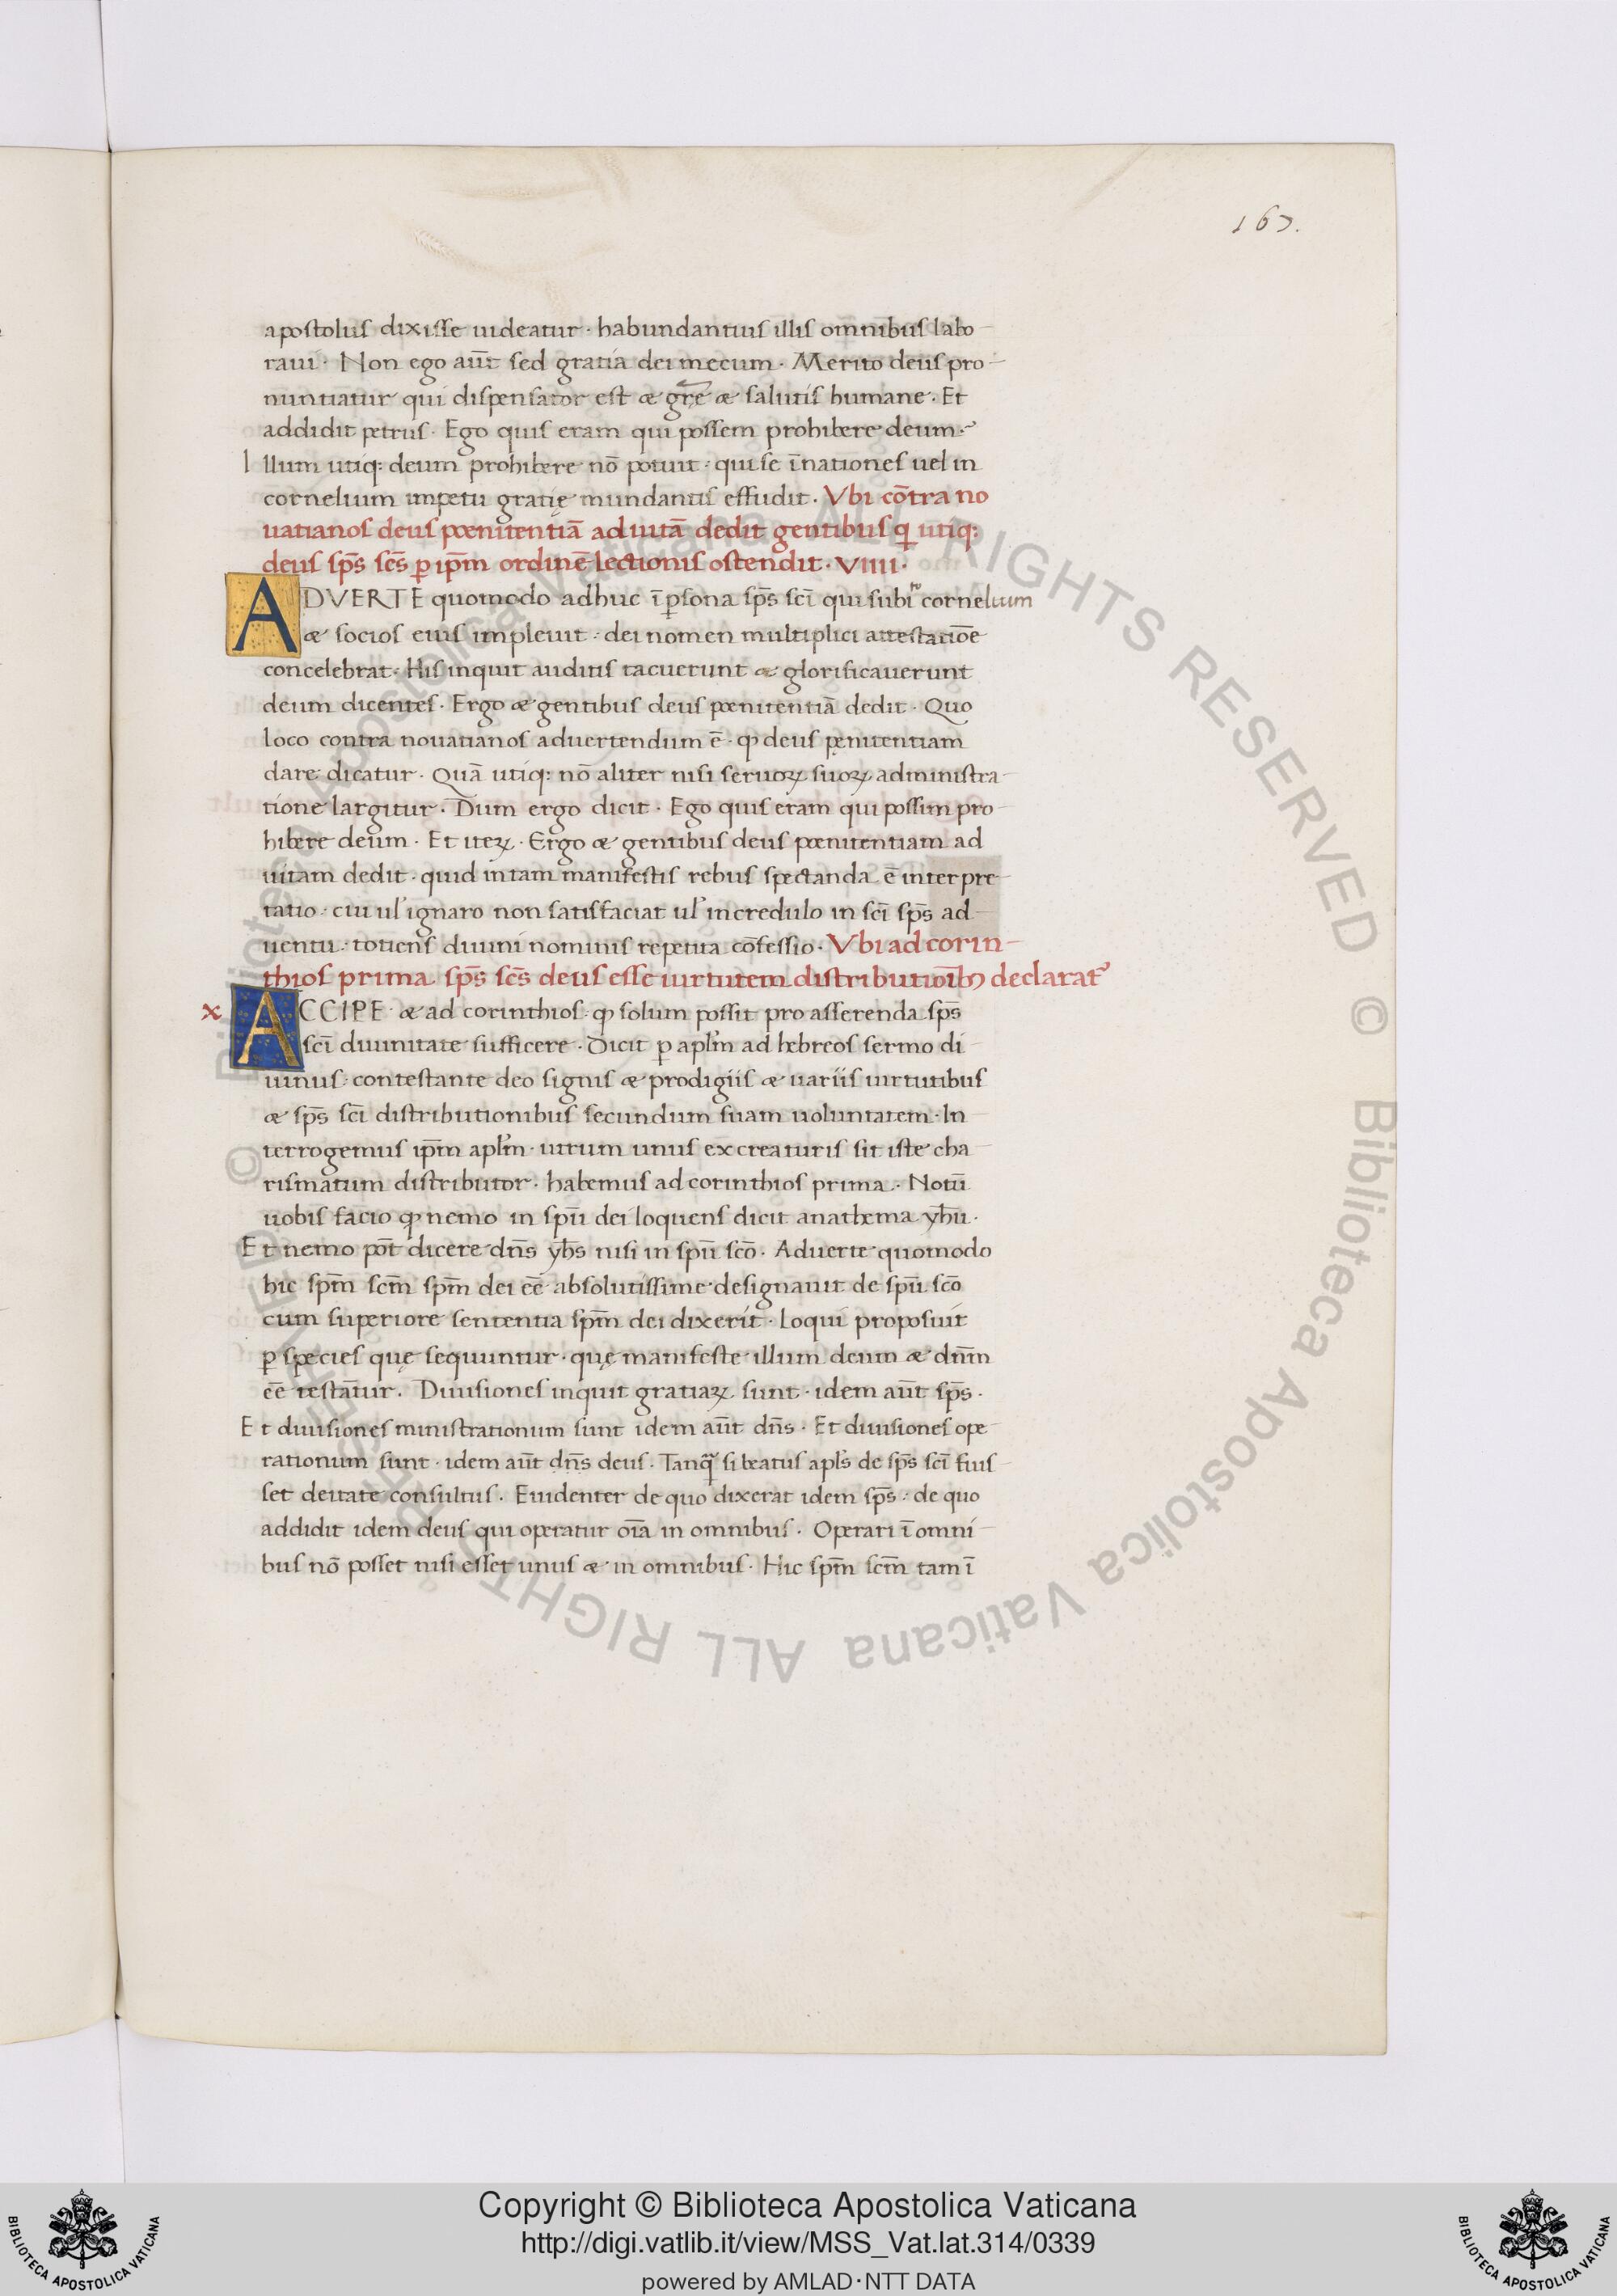 167.
apostolus dixisse uideatur · habundantius illis omnibus labo
raui · Non ego aut̄ sed gratia dei mecum · Merito deus pro
nuntiatur qui dispensator est æ grȩ̄ æ salutis humane · Et
addidit petrus · Ego quis eram qui possem prohibere deum ·
Illum utiq: deum prohibere nō potuit · qui se ī nationes uel in
cornelium impetu gratię mundantis effudit · Vbi cōtra no
uatianos deus pœnitentiā ad uitā dedit gentibus ꝙ utiq:
deus sp̄s sc̄s ꝑ ip̄m ordinē lectionis ostendit · VIIII ·
ADVERTE quomodo adhuc ī ꝑsona sp̄s sc̄i qui cornelium
æ socios eius impleuit · dei nomen multiplici attestatiōe
concelebrat · His inquit auditis tacuerunt æ glorificauerunt
deum dicentes · Ergo æ gentibus deus pœnitentiā dedit · Quo
loco contra nouatianos aduertendum ē · ꝙ deus pęnitentiam
dare dicatur · Quā utiq: nō aliter nisi seruoꝝ suoꝝ administra
tione largitur · Dum ergo dicit · Ego quis eram qui possim pro
hibere deum · Et iteꝝ · Ergo æ gentibus deus pœnitentiam ad
uitam dedit · quid in tam manifestis rebus spectanda ē interpre
tatio · cui ul' ignaro non satisfaciat ul' incredulo in sc̄i sp̄s ad
uentu · totiens diuini nominis repetita cōfessio · Vbi ad corin
thios prima sp̄s sc̄s deus esse uirtutem distributiōibꝫ declarat'
x
ACCIPE æ ad corinthios · ꝙ solum possit pro asserenda sp̄s
sc̄i diuinitate sufficere · Dicit ꝑ apl̄m ad hebreos sermo di
uinus · contestante deo signis æ prodigiis æ uariis uirtutibus
æ sp̄s sc̄i distributionibus secundum suam uoluntatem · In
terrogemus ip̄m apl̄m · utrum unus ex creaturis sit iste cha
rismatum distributor · habemus ad corinthios prima · Notū
uobis facio ꝙ nemo in spū dei loquens dicit anathema yh̄u ·
Et nemo pōt dicere dn̄s yh̄s nisi in spū scō · Aduerte quomodo
hic sp̄m sc̄m sp̄m dei eē absolutissime designauit de spū scō
cum superiore sententia sp̄m dei dixerit · loqui proposuit
ꝑ species quę sequuntur · quę manifeste illum deum æ dn̄m
eē testant̄ur · Diuisiones inquit gratiaꝝ sunt · idem aut̄ sp̄s ·
Et diuisiones ministrationum sunt idem aut̄ dn̄s · Et diuisiones ope
rationum sunt · idem aut̄ dn̄s deus · Tanq̄ si beatus apl's de sp̄s sc̄i fuis
set deitate consultus · Euidenter de quo dixerat idem sp̄s · de quo
addidit idem deus qui operatur oīa in omnibus · Operari ī omni
bus nō posset nisi esset unus æ in omnibus · Hic sp̄m sc̄m tam ī
© Biblioteca Apostolica Vaticana ALL RIGHTS RESERVED
© Biblioteca Apostolica Vaticana ALL RIGHTS RESERVED
Copyright © Biblioteca Apostolica Vaticana
http://digi.vatlib.it/view/MSS_Vat.lat.314/0339
powered by AMLAD·NTT DATA
BIBLIOTECA APOSTOLICA VATICANA
BIBLIOTECA APOSTOLICA VATICANA